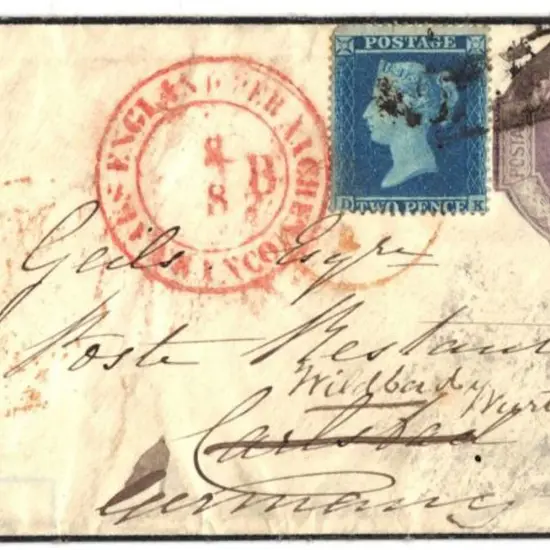 POSTAGE
D TWO PENCE K
POSTA
AUS ENGLAND PER AACHEN
FRANCO
B
Geils Esqre
Poste Restan
Wildbad
Wurt
Carlsbad
Germany